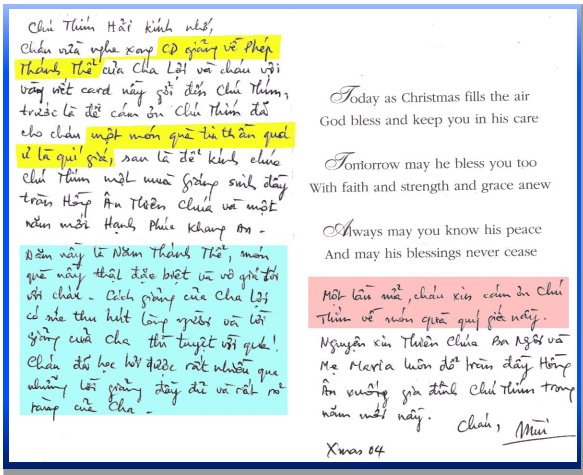 Chú Thím Hải kính nhớ,
cháu vừa nghe xong CD giảng về Phép
Thánh Thể của Cha Lợi và cháu vội
vàng viết card này gởi đến Chú Thím,
trước là để cám ơn Chú Thím đã
cho cháu một món quà tin thần quá
ư là quí giá, sau là để kính chúc
Chú Thím một mùa giáng sinh đầy
tràn Hồng Ân Thiên Chúa và một
năm mới Hạnh Phúc Khang An -
Năm này là Năm Thánh Thể, món
quà này thật đặc biệt và vô giá đối
với cháu - Cách giảng của Cha Lợi
có sức thu hút lòng người và lời
giảng của cha thì tuyệt vời quá!
Cháu đã học hỏi được rất nhiều qua
những lời giảng đầy đủ và rất rõ
ràng của Cha -
Today as Christmas fills the air
God bless and keep you in his care
Tomorrow may he bless you too
With faith and strength and grace anew
Always may you know his peace
And may his blessings never cease
Một lần nữa, cháu xin cám ơn Chú
Thím về món quà quý giá này.
Nguyện xin Thiên Chúa Ba Ngôi và
Mẹ Maria luôn đổ tràn đầy Hồng
Ân xuống gia đình Chú Thím trong
năm mới này.
Cháu,
Xmas 04